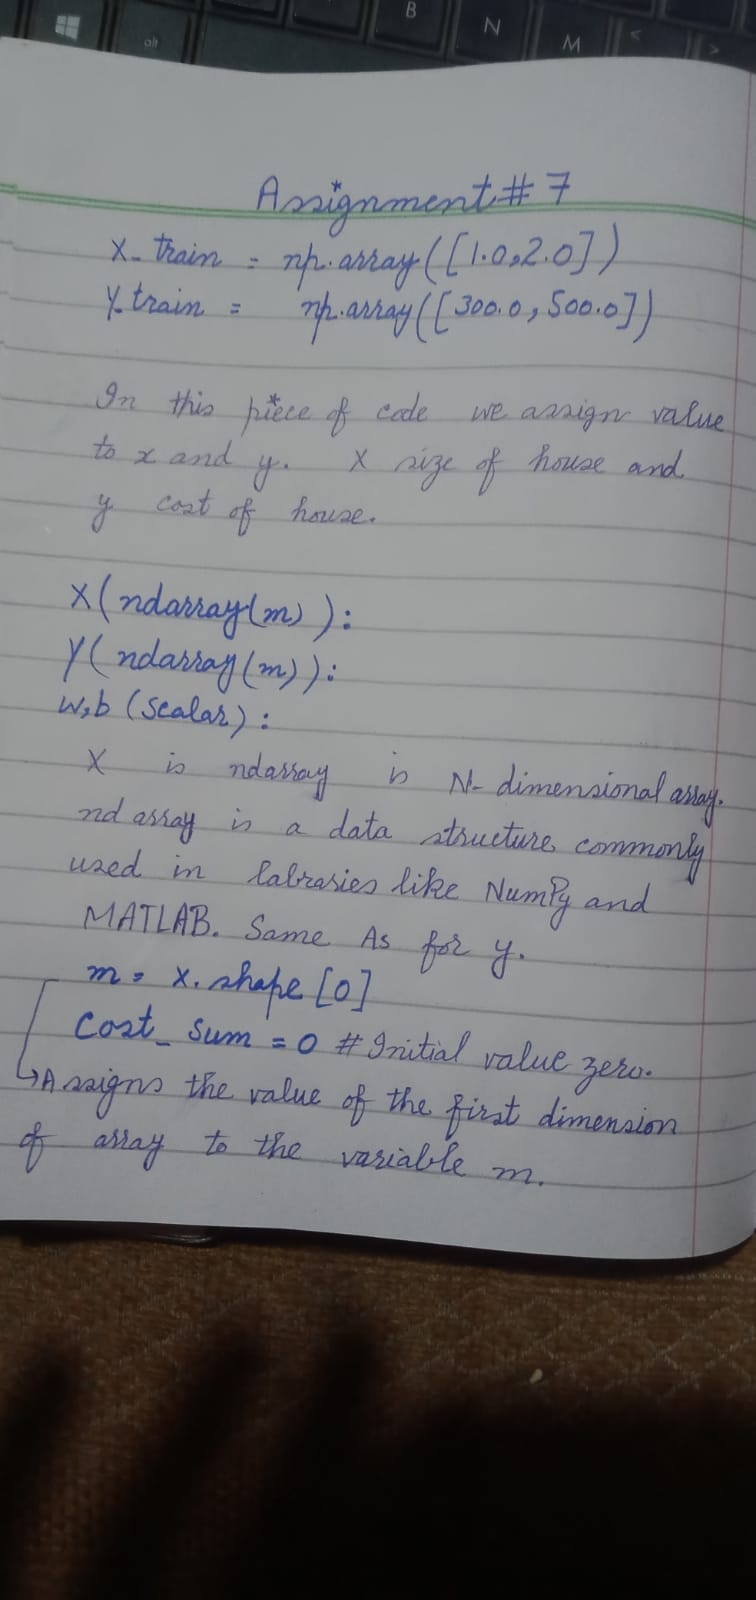 B
N
M
<
>
alt
Assignment # 7
X_ train = np.array([1.0,2.0])
Y_train = np.array([300.0, 500.0])
In this piece of code we assign value
to x and y. X size of house and
y cost of house.
X(ndarray(m) ):
Y( ndarray(m)):
w,b (Scalar) :
X is ndarray is N- dimensional array.
nd array is a data structure commonly
used in labraries like NumPy and
MATLAB. Same As for y.
m = X. shape [0]
Cost_ Sum = 0 # Initial value zero.
Assigns the value of the first dimension
of array to the variable m.